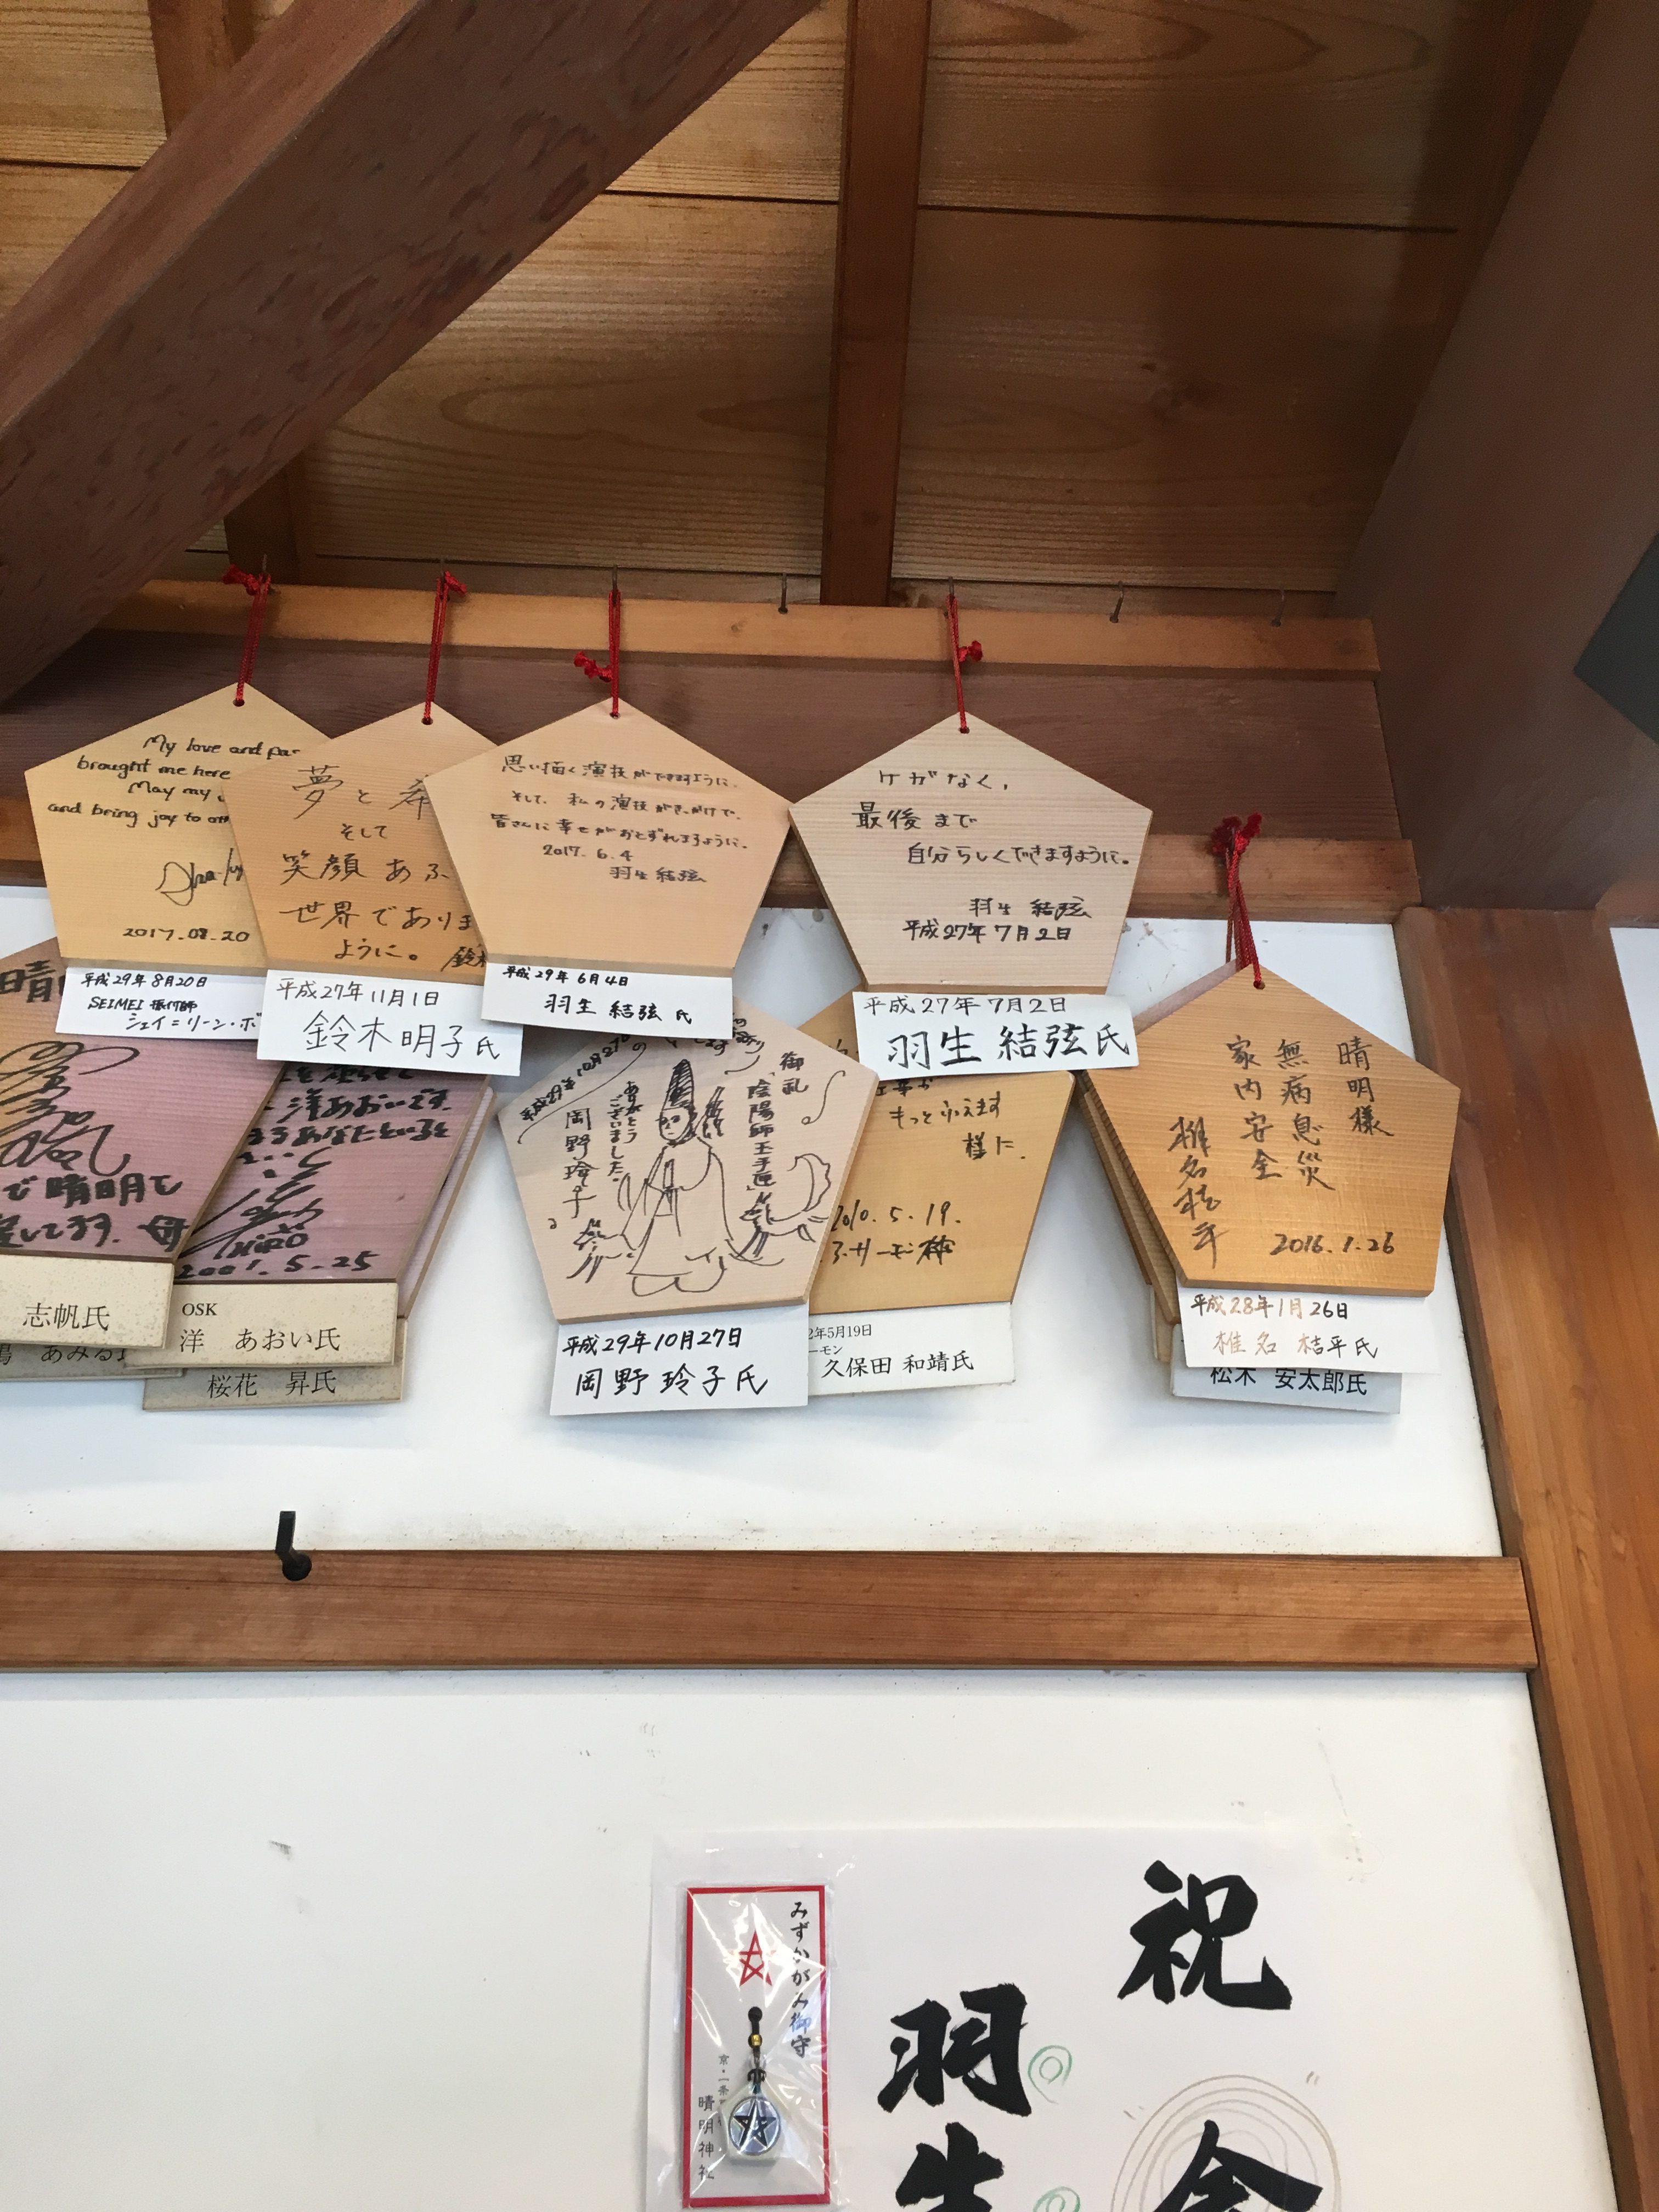 My love and
brought me here
May my
and bring joy to
2017.08.20
平成29年8月20日
SEIMEI 振付師
シェイ=リーン・ボ
夢と希
そして
笑顔あふ
世界でありま
ように。
平成27年11月1日
鈴木明子氏
思い描く演技ができますように。
そして、私の演技がきっかけで、
皆さんに幸せがおとずれますように。
2017.6.4
羽生結弦
平成29年6月4日
羽生 結弦 氏
ケガなく、
最後まで
自分らしくできますように。
羽生 結弦
平成27年7月2日
平成27年7月2日
羽生 結弦氏
晴明様
無病息災
家内安全
椎名桔平
2016.1.26
平成28年1月26日
椎名 桔平氏
松木 安太郎氏
晴
で晴明で
志帆氏
洋あおいです。
HIRO
2001.5.25
OSK
洋 あおい氏
桜花 昇氏
御礼
「陰陽師玉手匣」
ありがとう
ございました。
岡野玲子
平成29年10月27日
平成29年10月27日
岡野 玲子氏
もっとふえます
様に。
2010.5.19.
2年5月19日
ーモン
久保田 和靖氏
祝
羽生
みずかがみ御守
晴明神社